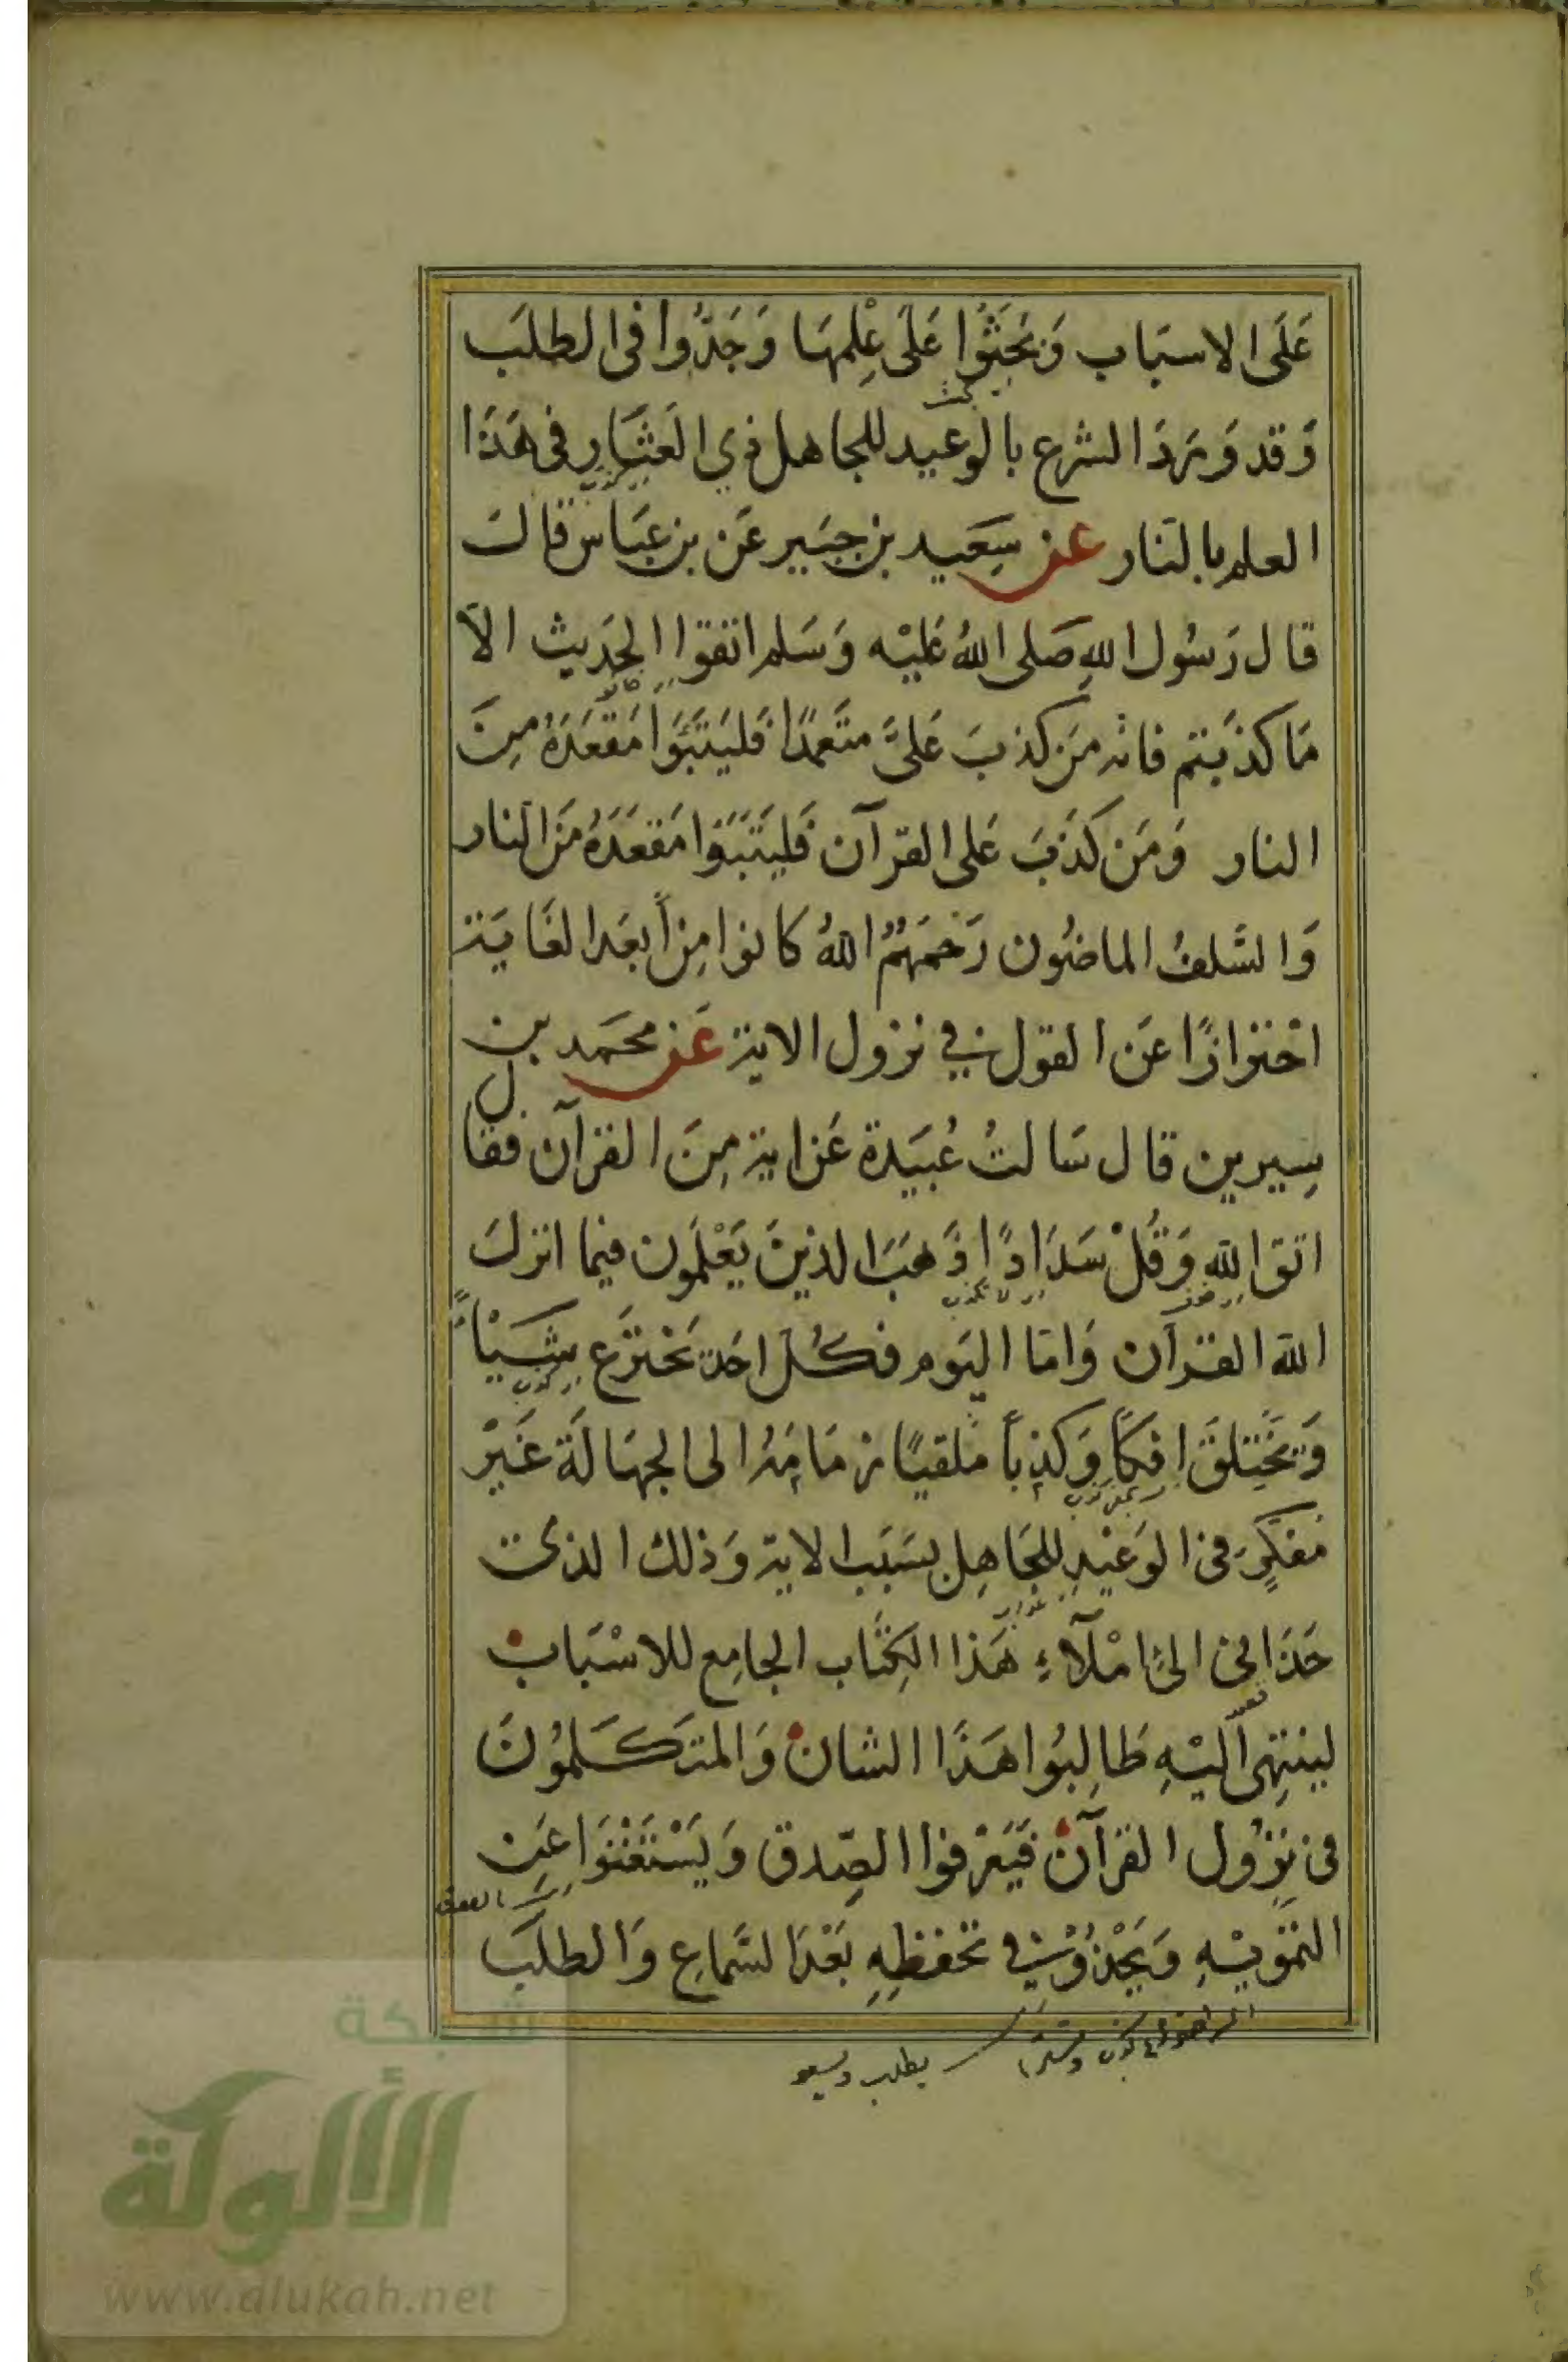 عَلَى الاسبَاب وَبَحَثُوا عَلَى عِلْمِهَا وَجَدُّوا فى الطلَب
وَقد وَرَدَ الشرع بالوعيد للجاهل ذي العِثَارِ فى هَذَا
العلم بالنار عن سَعيد بن جبَير عَن بن عبَاس قال
قال رَسُول اللهِ صَلى اللهُ عَليْه وَسَلم اتقوا الحَديث الا
مَا كذبتم فانه مَن كذبَ عَلىَّ متعَمدًا فَليَتَبَوَا مَقعَدَهُ مِنَ
النار وَمَن كَذَبَ عَلى القرآن فَليَتَبَوا مَقعَدَهُ مَن النار
وَالسَلفُ الماضُون رَحمَهُمُ اللهُ كانوا مِن أبعَد الغَايَة
احْترازًا عَن القول في نزول الاية عَن محمَد بن
سِيرين قال سَالتُ عُبَيدة عَن اية مِنَ القرآن فقال
اتق الله وَقُلْ سَدَادًا ذَهَبَ الذينَ يَعْلَمُون فيما انزلَ
الله القرآن وَامَا اليَوم فكل احَد يَخترع شَيْاً
وَيَخْتلقَ افكًا وَكذباً ملقيًا زمَامَهُ الى الجهَالَة غَيْر
مُفكِرٍ فى الوَعيْدِ للجَاهِل بسَبَب الاية وَذلك الذى
حَدَا بى الىَ امْلآءِ هَذا الكِتَاب الجامِع للاسْبَاب
لينتهِى اليْهِ طَالِبُوا هَذَا الشان وَالمتكَلمُونَ
فى نزُول القرآن فَيَعْرفوا الصِّدق وَيَسْتَغْنَوا عَن
التمْويْهِ وَيَجِدُّوْا في تحْفظِهِ بَعْدَ السَّمَاعِ وَالطلَب
يطلب
شبكة
الألوكة
www.alukah.net